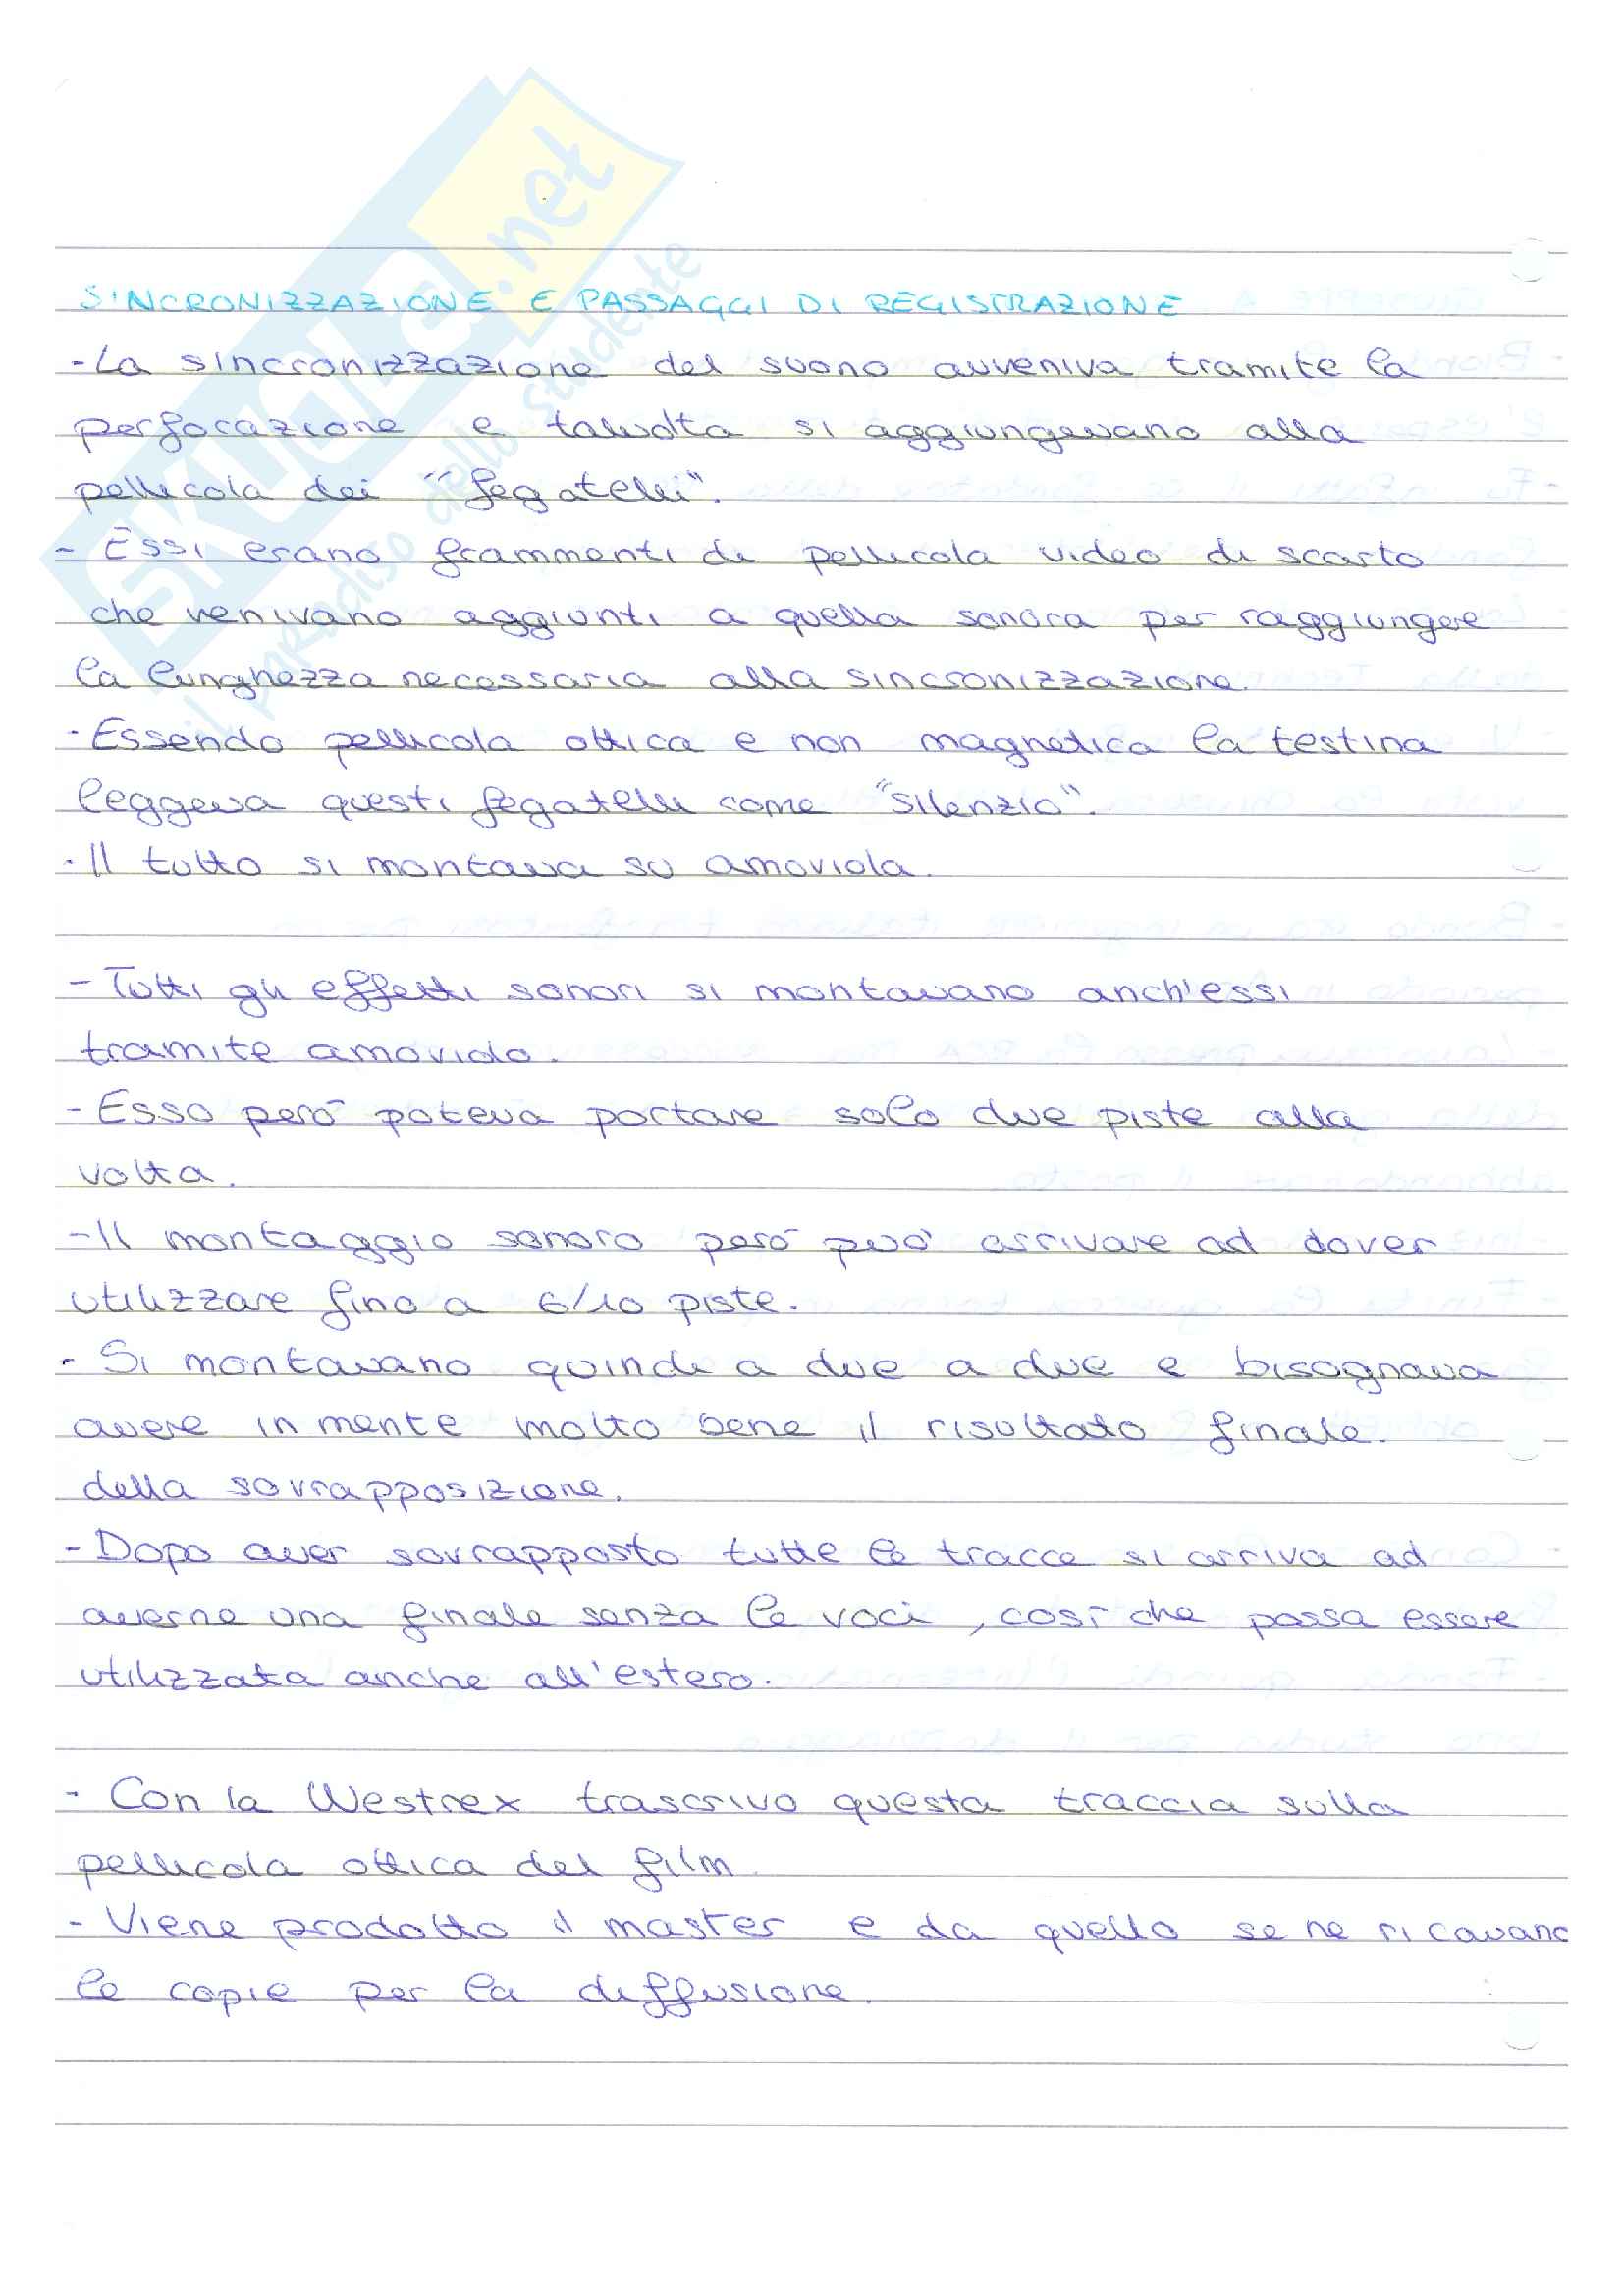 SKUOLA.net
il paradiso dello studente
SINCRONIZZAZIONE E PASSAGGI DI REGISTRAZIONE
-La sincronizzazione del suono avveniva tramite la
perforazione e talvolta si aggiungevano alla
pellicola dei "fegatelli".
- Essi erano frammenti di pellicola video di scarto
che venivano aggiunti a quella sonora per raggiungere
la lunghezza necessaria alla sincronizzazione.
-Essendo pellicola ottica e non magnetica la testina
leggeva questi fegatelli come "silenzio".
-Il tutto si montava su amoviola.
-Tutti gli effetti sonori si montavano anch'essi
tramite amoviola.
-Esso però poteva portare solo due piste alla
volta.
-Il montaggio sonoro però può arrivare ad dover
utilizzare fino a 6/10 piste.
- Si montavano quindi a due a due e bisognava
avere in mente molto bene il risultato finale.
della sovrapposizione.
-Dopo aver sovrapposto tutte le tracce si arriva ad
averne una finale senza le voci, così che possa essere
utilizzata anche all'estero.
- Con la Westrex trascrivo questa traccia sulla
pellicola ottica del film.
- Viene prodotto il master e da quello se ne ricavano
le copie per la diffusione.